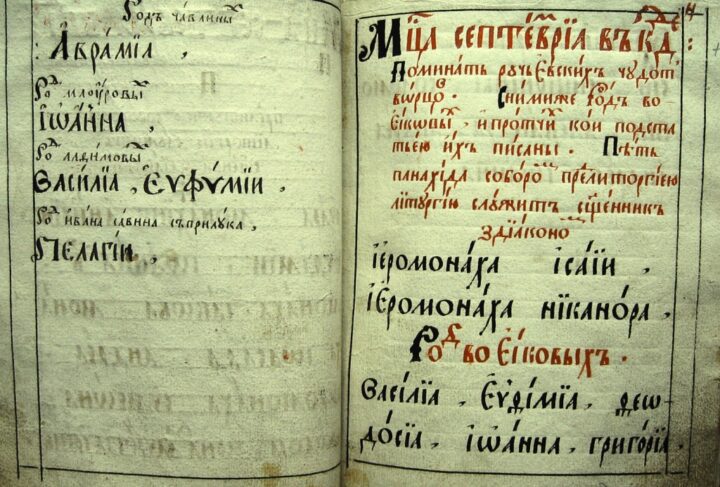 Родъ чавдины
Авраміа ,
Ро млоуровы
Іѡанна ,
Ро ладимовы
Василіа , Еуфуміи ,
Ро ивана савина съприлука ,
Пелагіи ,
Мца септевріа въ кд :
Поминать ручьевскихъ чудот
ворцо . Снимиже родъ во
еиковы , и протчи кои подста
тьею ихъ писаны . Пѣть
панахіда соборо прелиторгіею
літургію служит сщенникъ
здіаконо
іеромонаха ісаіи .
іеромонаха ніканора .
Родъ во еіковыхъ .
Василіа , Еудиміа , Ѳеѡ
досіа , іѡанна , григоріа ,